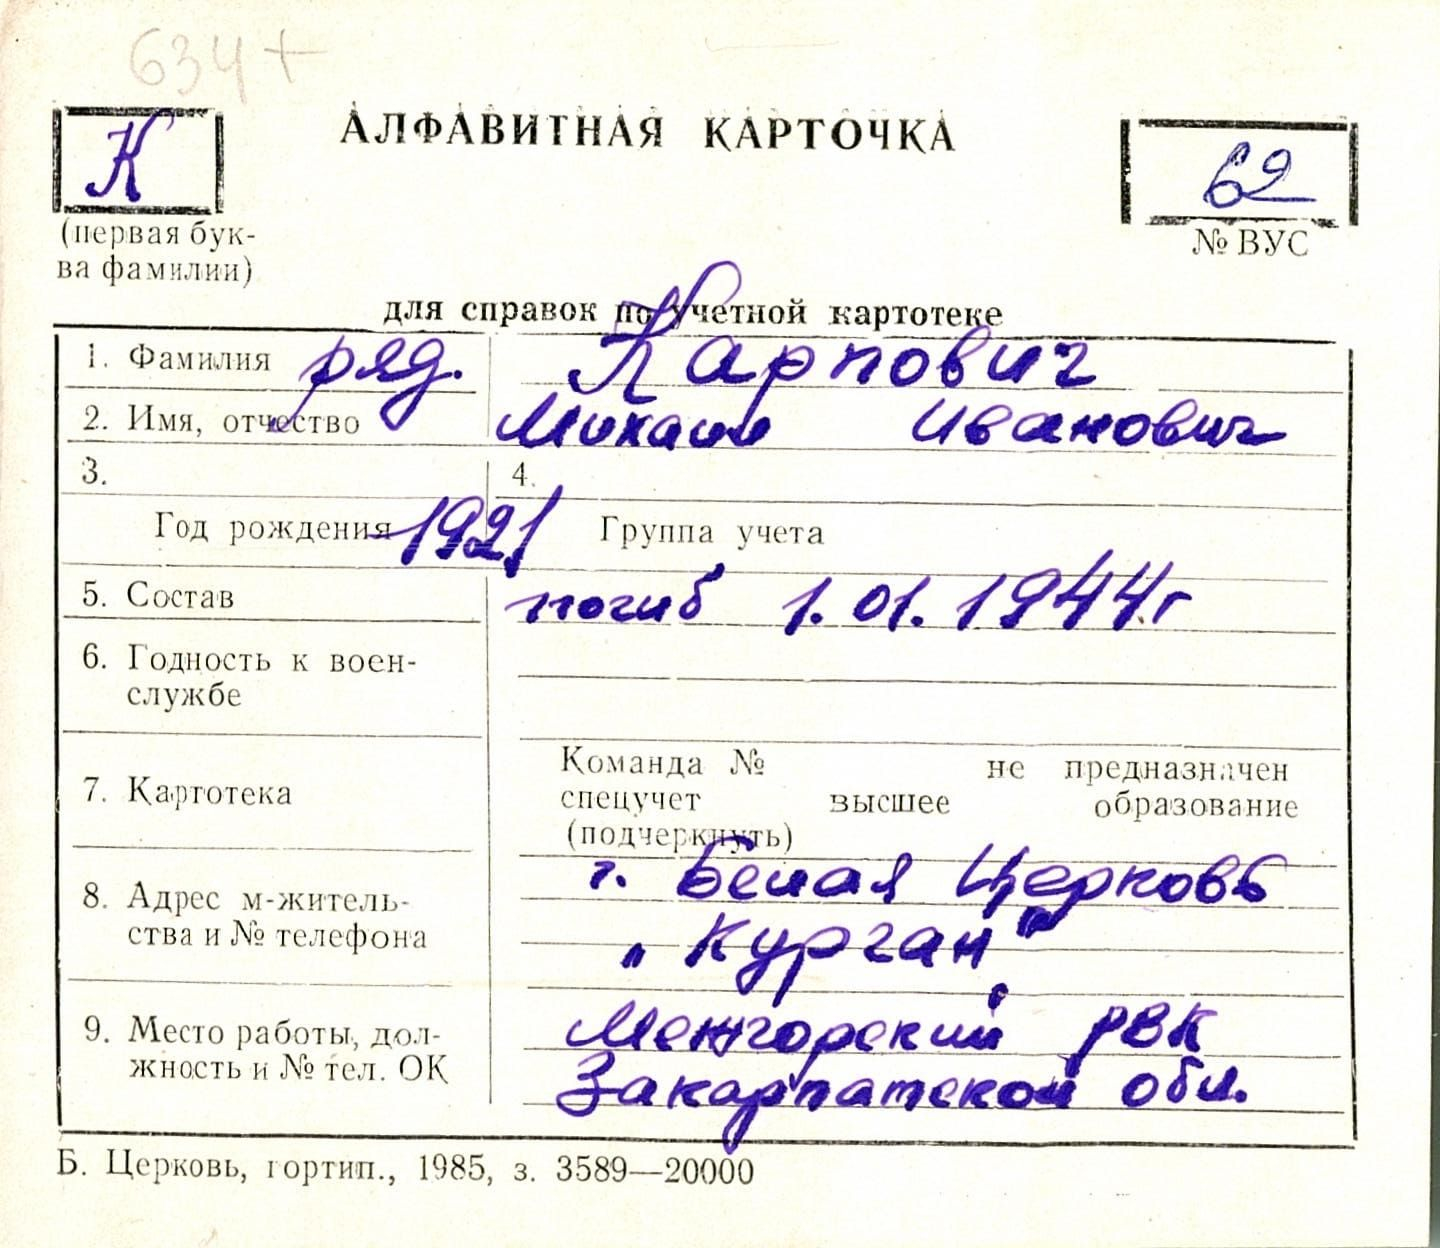 634+
АЛФАВИТНАЯ КАРТОЧКА
К
62
(первая бук-
ва фамилии)
№ ВУС
для справок по учетной картотеке
1. Фамилия ряд. Карпович
2. Имя, отчество Михаил Иванович
3. 4.
Год рождения 1921 Группа учета
5. Состав погиб 1.01.1944г
6. Годность к воен-
службе
7. Картотека
Команда № не предназначен
спецучет высшее образование
(подчеркнуть)
8. Адрес м-житель-
ства и № телефона
г. Белая Церковь
„Курган"
9. Место работы, дол-
жность и № тел. ОК
Межгорский РВК
Закарпатской обл.
Б. Церковь, гортип., 1985, з. 3589—20000